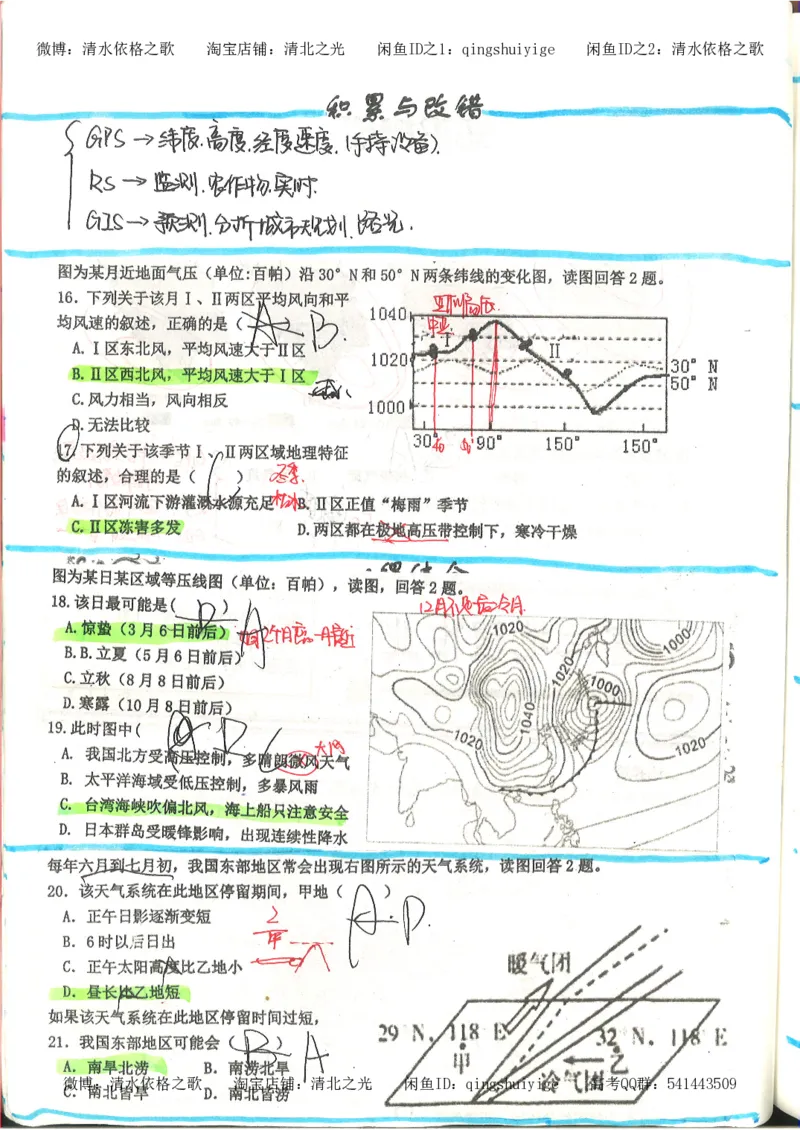 微博：清水依格之歌 淘宝店铺：清北之光 闲鱼ID之1：qingshuiyige 闲鱼ID之2：清水依格之歌
积累与改错
GPS→纬度.高度.经度速度.(手持设备).
RS→监测.农作物.实时.
GIS→预测.分析.城市规划.
图为某月近地面气压（单位:百帕）沿 30° N 和 50° N 两条纬线的变化图，读图回答 2 题。
16．下列关于该月Ⅰ、Ⅱ两区平均风向和平
均风速的叙述，正确的是（ A ）B.
A.Ⅰ区东北风，平均风速大于Ⅱ区
B.Ⅱ区西北风，平均风速大于Ⅰ区
C.风力相当，风向相反
D.无法比较
1040
1020
1000
Ⅰ
Ⅱ
30° N
50° N
30° 90° 150° 150°
17.下列关于该季节Ⅰ、Ⅱ两区域地理特征
的叙述，合理的是（ ）
冬季.
A.Ⅰ区河流下游灌溉水源充足 B.Ⅱ区正值“梅雨”季节
C.Ⅱ区冻害多发 D.两区都在极地高压带控制下，寒冷干燥
图为某日某区域等压线图（单位：百帕），读图，回答 2 题。
18.该日最可能是( D ) A
A.惊蛰（3 月 6 日前后）
B.B.立夏（5 月 6 日前后）
C.立秋（8 月 8 日前后）
D.寒露（10 月 8 日前后）
1020
1000
1020
1000
1040
1020
1020
19.此时图中(
A. 我国北方受高压控制，多晴朗微风天气
大风
B. 太平洋海域受低压控制，多暴风雨
C. 台湾海峡吹偏北风，海上船只注意安全
D. 日本群岛受暖锋影响，出现连续性降水
每年六月到七月初，我国东部地区常会出现右图所示的天气系统，读图回答 2 题。
20．该天气系统在此地区停留期间，甲地（ ）A.D.
A．正午日影逐渐变短
B．6 时以后日出
C．正午太阳高度比乙地小
D．昼长比乙地短
乙
甲
如果该天气系统在此地区停留时间过短，
21．我国东部地区可能会（ B ）A
A．南旱北涝 B．南涝北旱
C．南北皆旱 D．南北皆涝
暖气团
29 N、118 E
甲
32 N、118 E
乙
冷气团
微博：清水依格之歌 淘宝店铺：清北之光 闲鱼ID：qingshuiyige 备考QQ群：541443509